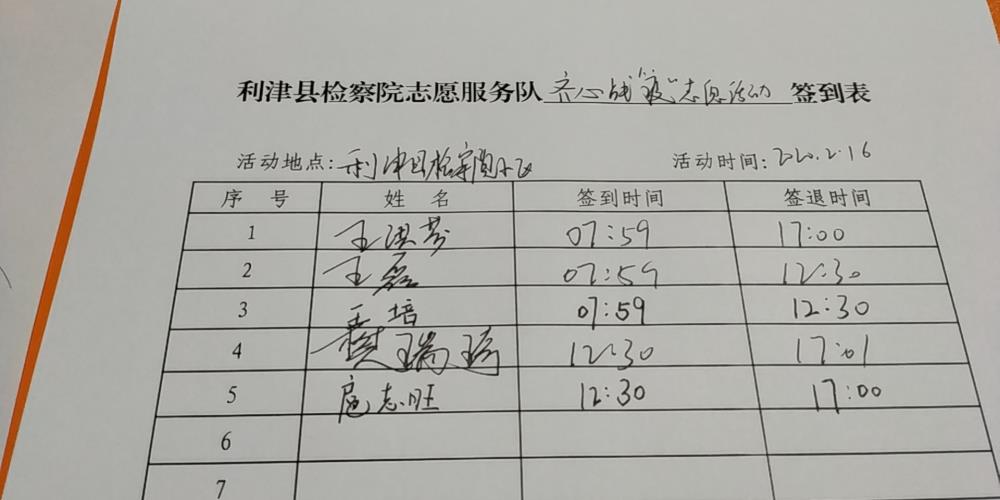 利津县检察院志愿服务队 齐心战"疫"志愿活动 签到表
活动地点: 利津县检察院小区 活动时间: 2020.2.16
序 号 姓 名 签到时间 签退时间
1 王洪芬 07:59 17:00
2 王磊 07:59 12:30
3 培 07:59 12:30
4 12:30 17:01
5 扈志旺 12:30 17:00
6
7